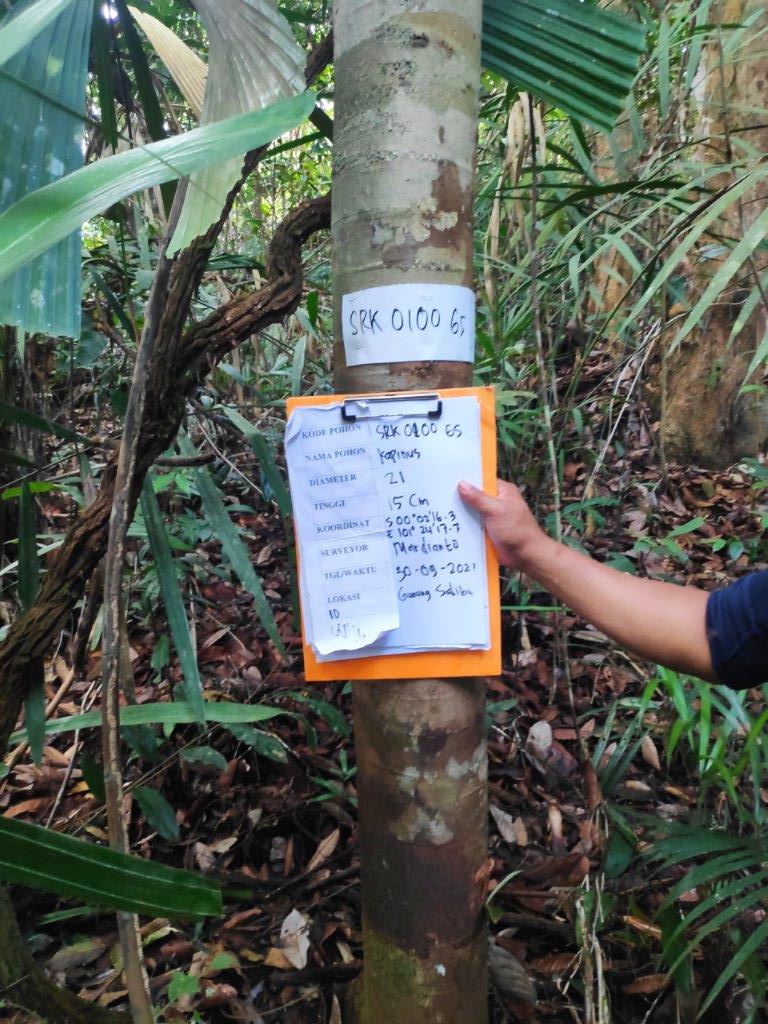 SRK 0100 65
KODE POHON SRK 0100 65
NAMA POHON Kapinus
DIAMETER 21
TINGGI 15 Cm
KOORDINAT S 00°02'16.3
E 101°24'17.7
SURVEYOR Mardianto
TGL/WAKTU 30-09-2021
LOKASI Gunung
ID